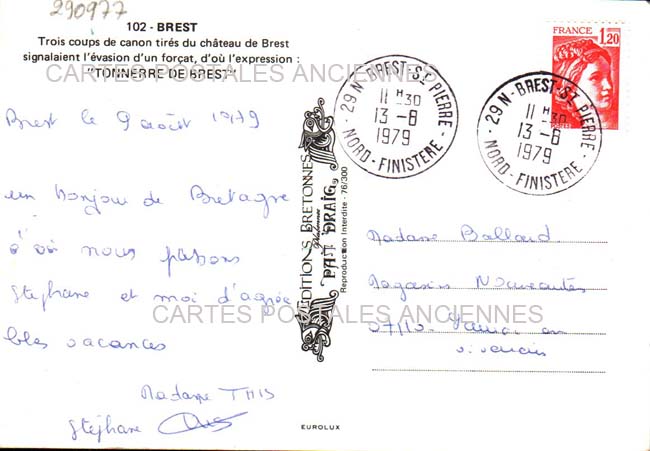 290977
102 - BREST
Trois coups de canon tirés du château de Brest
signalaient l'évasion d'un forçat, d'où l'expression :
"TONNERRE DE BREST"
CARTES POSTALES ANCIENNES
Brest le 9 août 1979
un bonjour de Bretagne
d'où nous passons
Stéphane et moi d'agréa
bles vacances
Madame THIS
Stéphane
ÉDITIONS BRETONNES
PAT DRAIG
Reproduction Interdite - 76/300
EUROLUX
29 N - BREST-ST PIERRE -
11 H 30
13 - 8
1979
NORD - FINISTERE
29 N - BREST-ST PIERRE -
11 H 30
13 - 8
1979
NORD - FINISTERE
FRANCE 1,20
Madame Ballard
Magasins Nouveautés
07110
CARTES POSTALES ANCIENNES